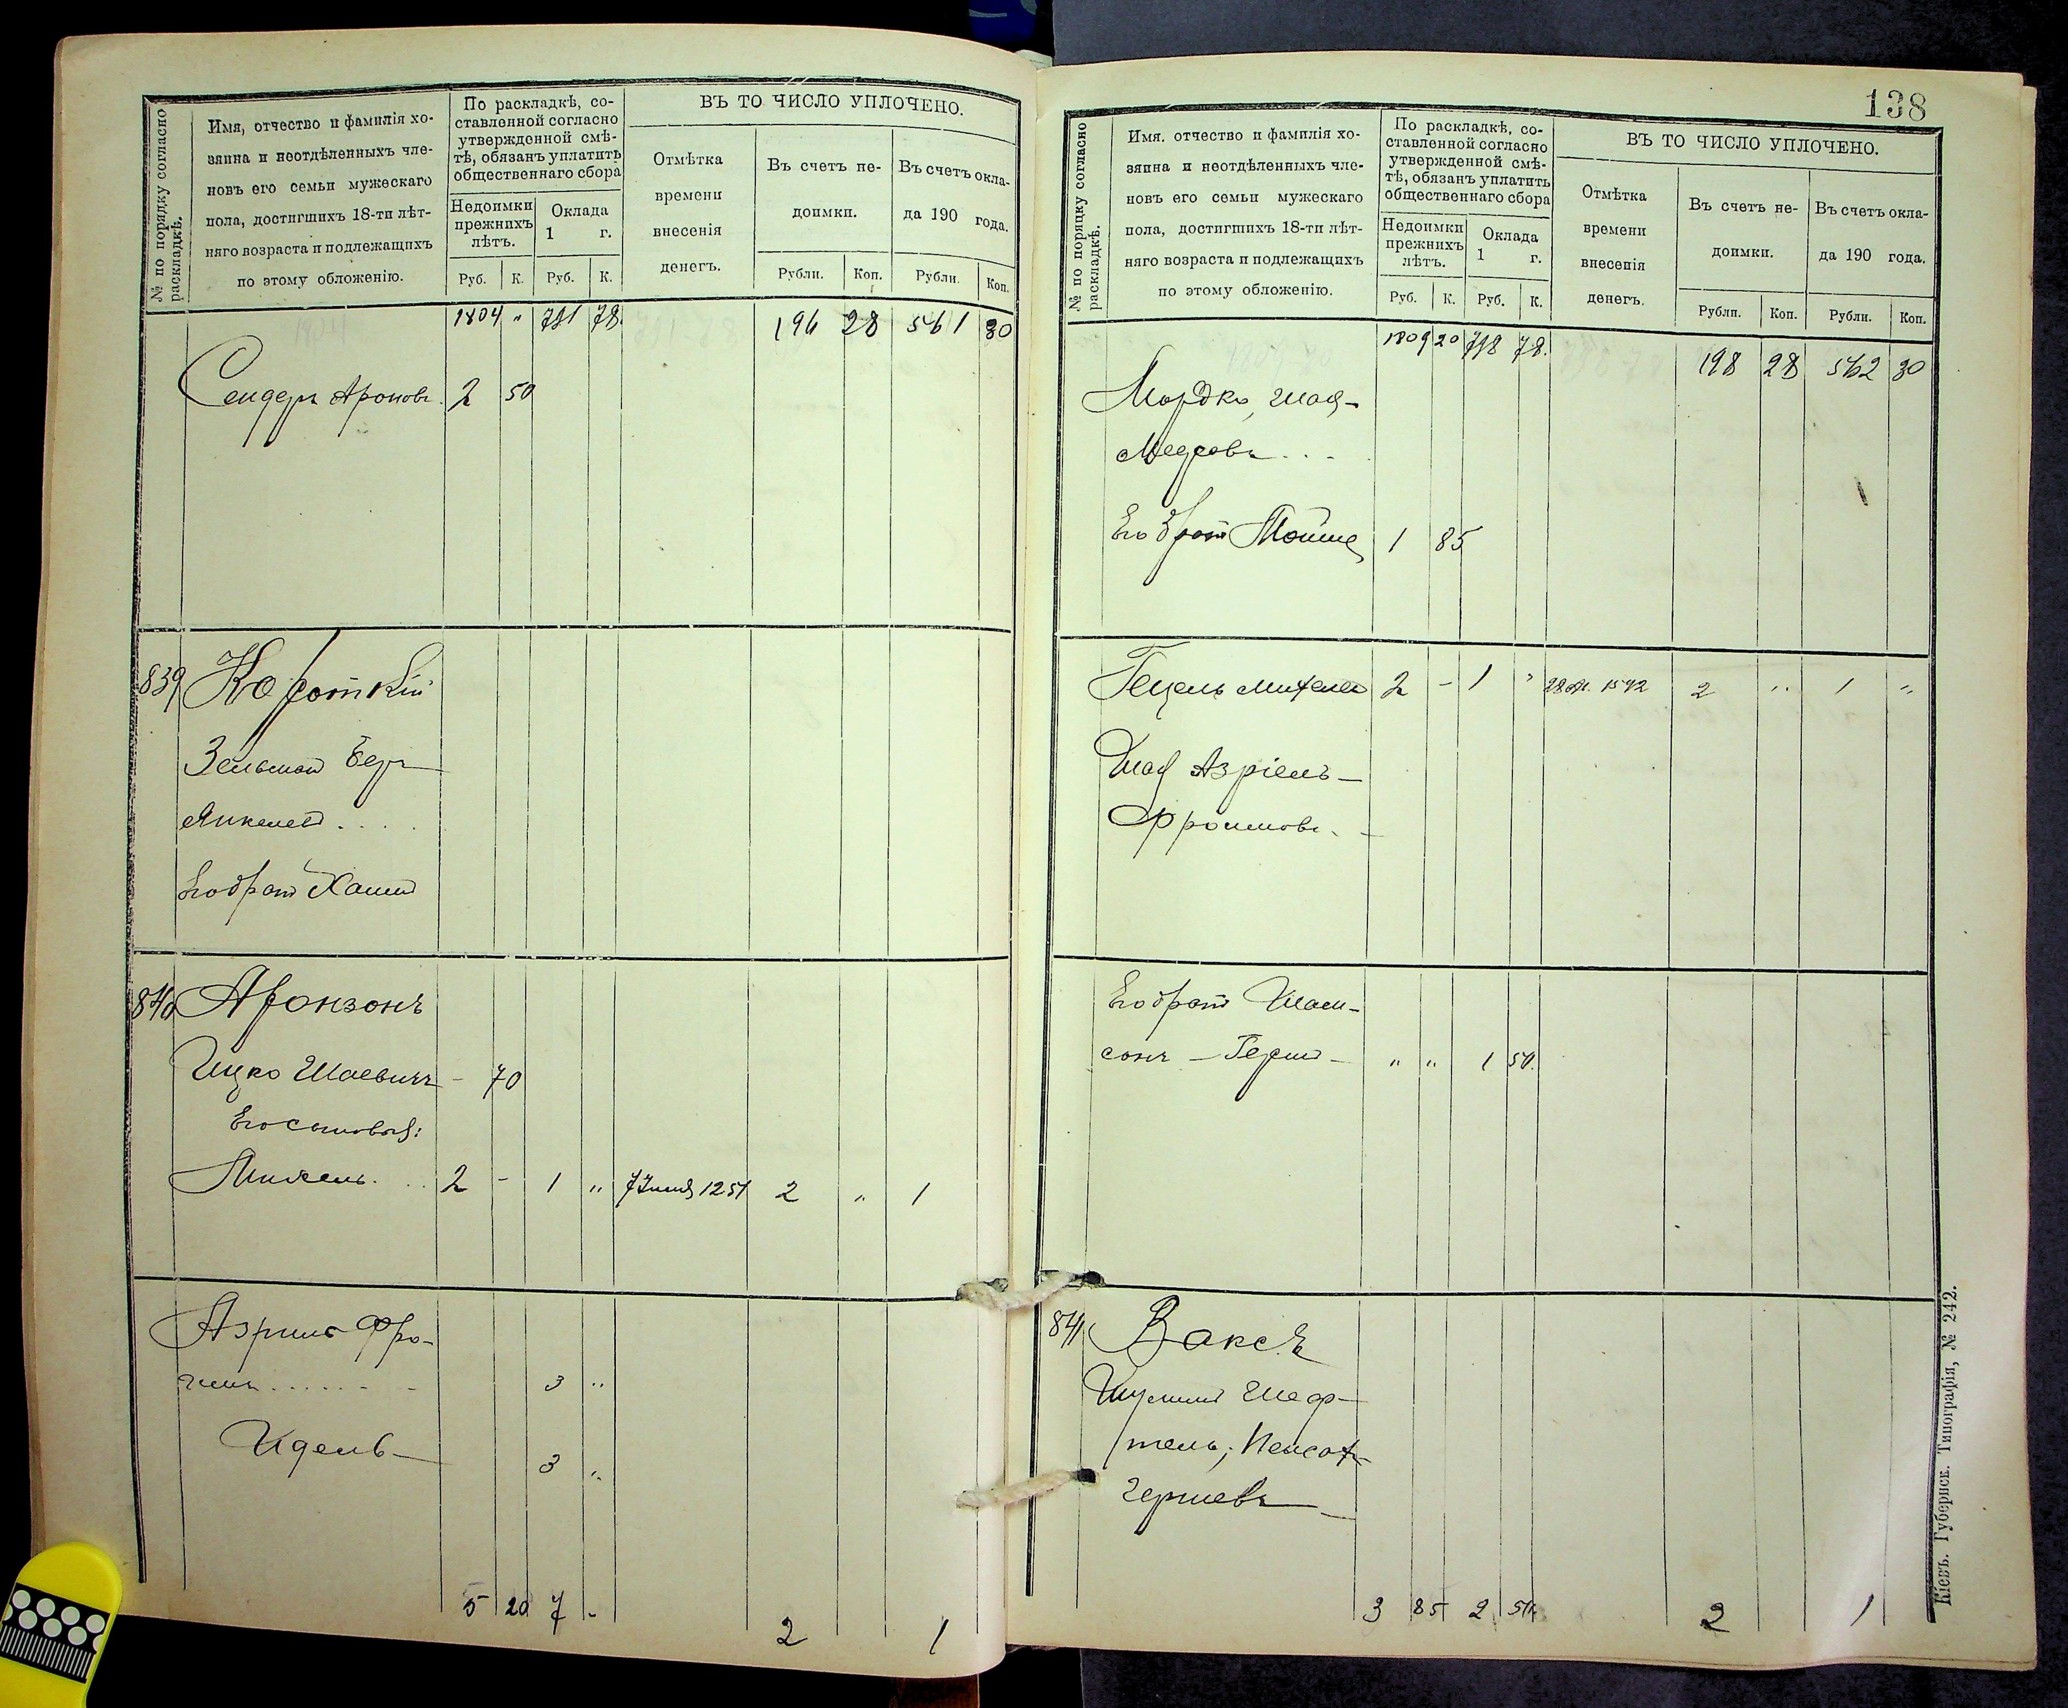 № по порядку согласно раскладкѣ.
Имя, отчество и фамилія хо-
зяина и неотдѣленныхъ чле-
новъ его семьи мужескаго
пола, достигшихъ 18-ти лѣт-
няго возраста и подлежащихъ
по этому обложенію.
По раскладкѣ, со-
ставленной согласно
утвержденной смѣ-
тѣ, обязанъ уплатить
общественнаго сбора
Недоимки
прежнихъ
лѣтъ.
Оклада
1 г.
Руб. К. Руб. К.
ВЪ ТО ЧИСЛО УПЛОЧЕНО.
Отмѣтка
времени
внесенія
денегъ.
Въ счетъ не-
доимки.
Въ счетъ окла-
да 190 года.
Рубли. Коп. Рубли. Коп.
1804 " 791 78. 196 28 561 30
Сендеръ Ароновъ. 2 50
839 Короткій
Зельманъ Беръ
Янкелевъ . . . .
Его братъ Хаимъ
840 Аронзонъ
Ицко Шаевичъ - 70
Его сыновья:
Михель. . . 2 - 1 " 7 Іюня 1251 2 " 1
Азрилъ Фро-
имъ . . . . . . 3 "
Идель 3 "
5 20 7 -
2 1
138
№ по порядку согласно раскладкѣ.
Имя, отчество и фамилія хо-
зяина и неотдѣленныхъ чле-
новъ его семьи мужескаго
пола, достигшихъ 18-ти лѣт-
няго возраста и подлежащихъ
по этому обложенію.
По раскладкѣ, со-
ставленной согласно
утвержденной смѣ-
тѣ, обязанъ уплатить
общественнаго сбора
Недоимки
прежнихъ
лѣтъ.
Оклада
1 г.
Руб. К. Руб. К.
ВЪ ТО ЧИСЛО УПЛОЧЕНО.
Отмѣтка
времени
внесенія
денегъ.
Въ счетъ не-
доимки.
Въ счетъ окла-
да 190 года.
Рубли. Коп. Рубли. Коп.
1809 20 798 78. 198 28 562 30
Мордко, Шая-
Его братъ Мошко 1 85
Гецель Михелев 2 - 1 " 1592 2 " 1 "
Шая Азріель-
Фроимовъ.
Его братъ Шам-
сонъ - Герш - " " 1 50.
841 Ваксъ
Шеф-
тель,
Гершевъ
3 85 2 50 2 1
Кіевъ. Губернск. Типографія, № 242.